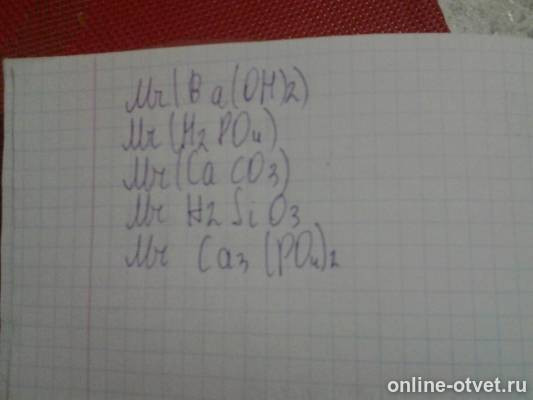 Mr(Ba(OH)2)
Mr(H2PO4)
Mr(CaCO3)
Mr H2SiO3
Mr Ca3(PO4)2
online-otvet.ru